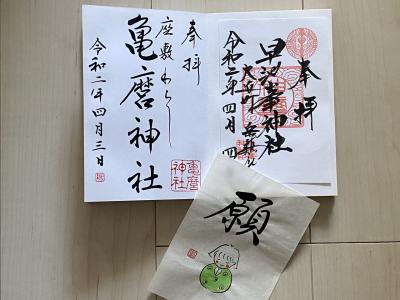 奉拝
早池峯神社
大出町
令和二年四月四
奉拝
座敷わらし
亀麿神社
令和二年四月三日
亀麿神社
願